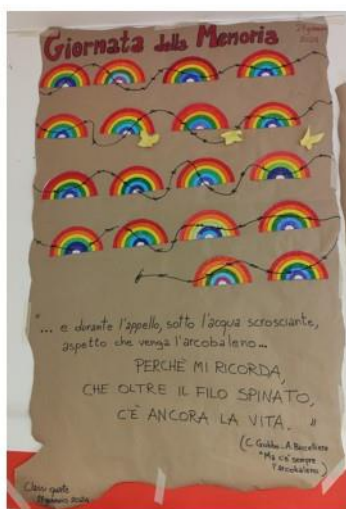 Giornata della Memoria
2024
"... e durante l'appello, sotto l'acqua scrosciante,
aspetto che venga l'arcobaleno...
PERCHÈ MI RICORDA,
CHE OLTRE IL FILO SPINATO,
C'È ANCORA LA VITA. "
(C. Gobbo - A.
"Ma c'è sempre
l'arcobaleno)
Classi quinte
gennaio 2024